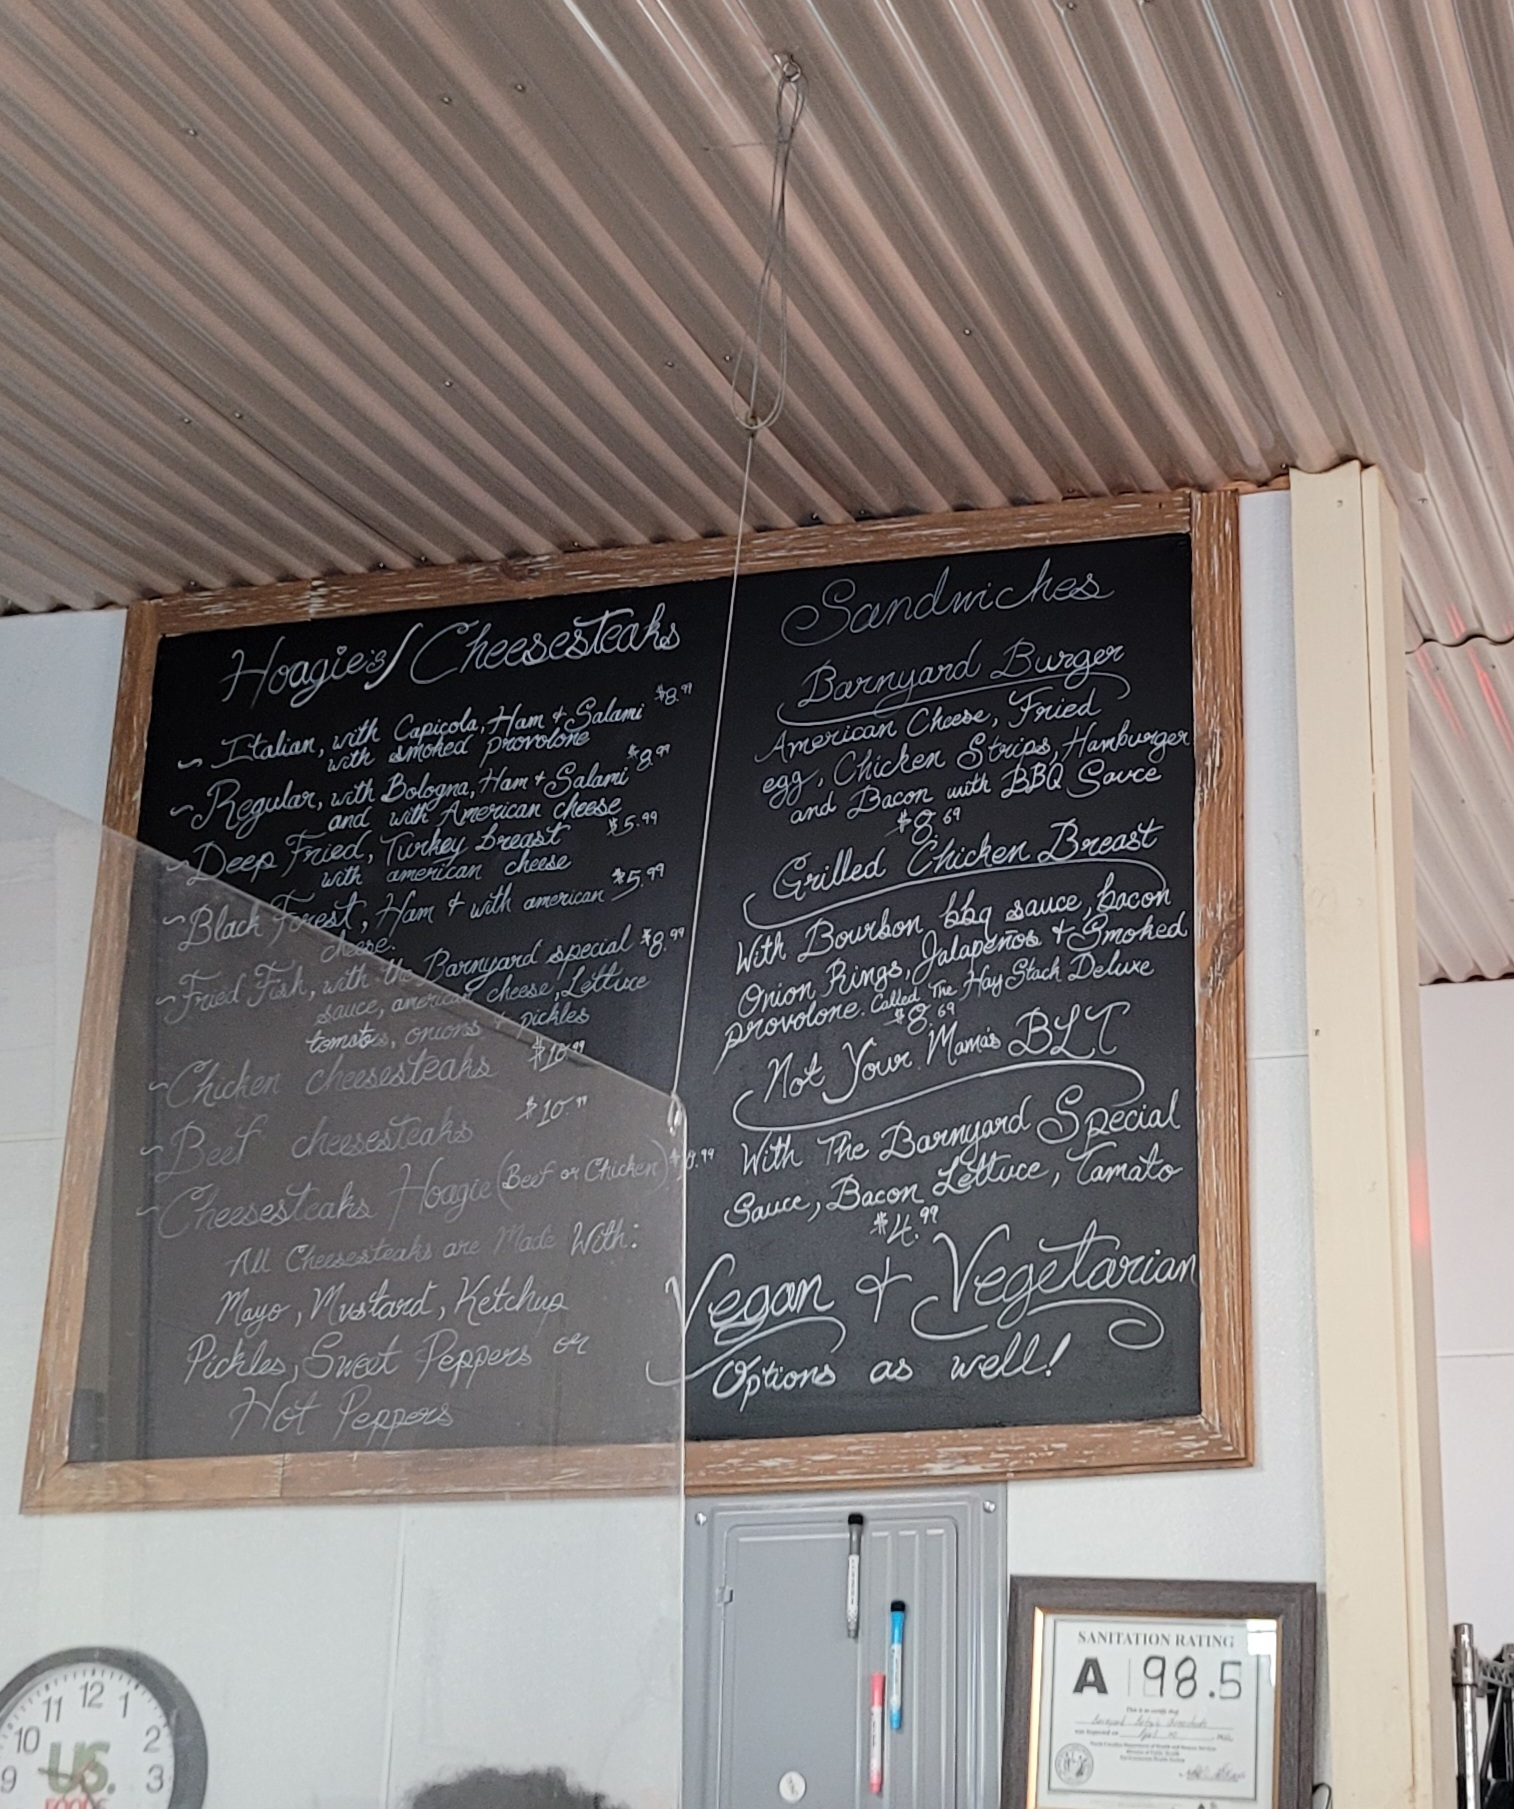 Hoagie's/Cheesesteaks
~ Italian, with Capicola, Ham & Salami $8.99
with smoked provolone
~ Regular, with Bologna, Ham + Salami $8.99
and with American cheese
~ Deep Fried, Turkey breast $5.99
with american cheese
~ Black Forest, Ham & with american $5.99
cheese.
~ Fried Fish, with the Barnyard special $8.99
sauce, american cheese, Lettuce
tomatos, onions + pickles
~ Chicken cheesesteaks $10.99
~ Beef cheesesteaks $10.99
~ Cheesesteaks Hoagie (Beef or Chicken)
All Cheesesteaks are Made With:
Mayo, Mustard, Ketchup
Pickles, Sweet Peppers or
Hot Peppers
Sandwiches
Barnyard Burger
American Cheese, Fried
egg, Chicken Strips, Hamburger
and Bacon with BBQ Sauce
$8.69
Grilled Chicken Breast
With Bourbon bbq sauce, bacon
Onion Rings, Jalapeños & Smoked
provolone. Called The Hay Stack Deluxe
$8.69
Not Your Mama's BLT
With The Barnyard Special
Sauce, Bacon Lettuce, Tamato
$4.99
Vegan & Vegetarian
Options as well!
SANITATION RATING
A 98.5
This is to certify that
10 11 12 1 2 3 9
US.
FOODS